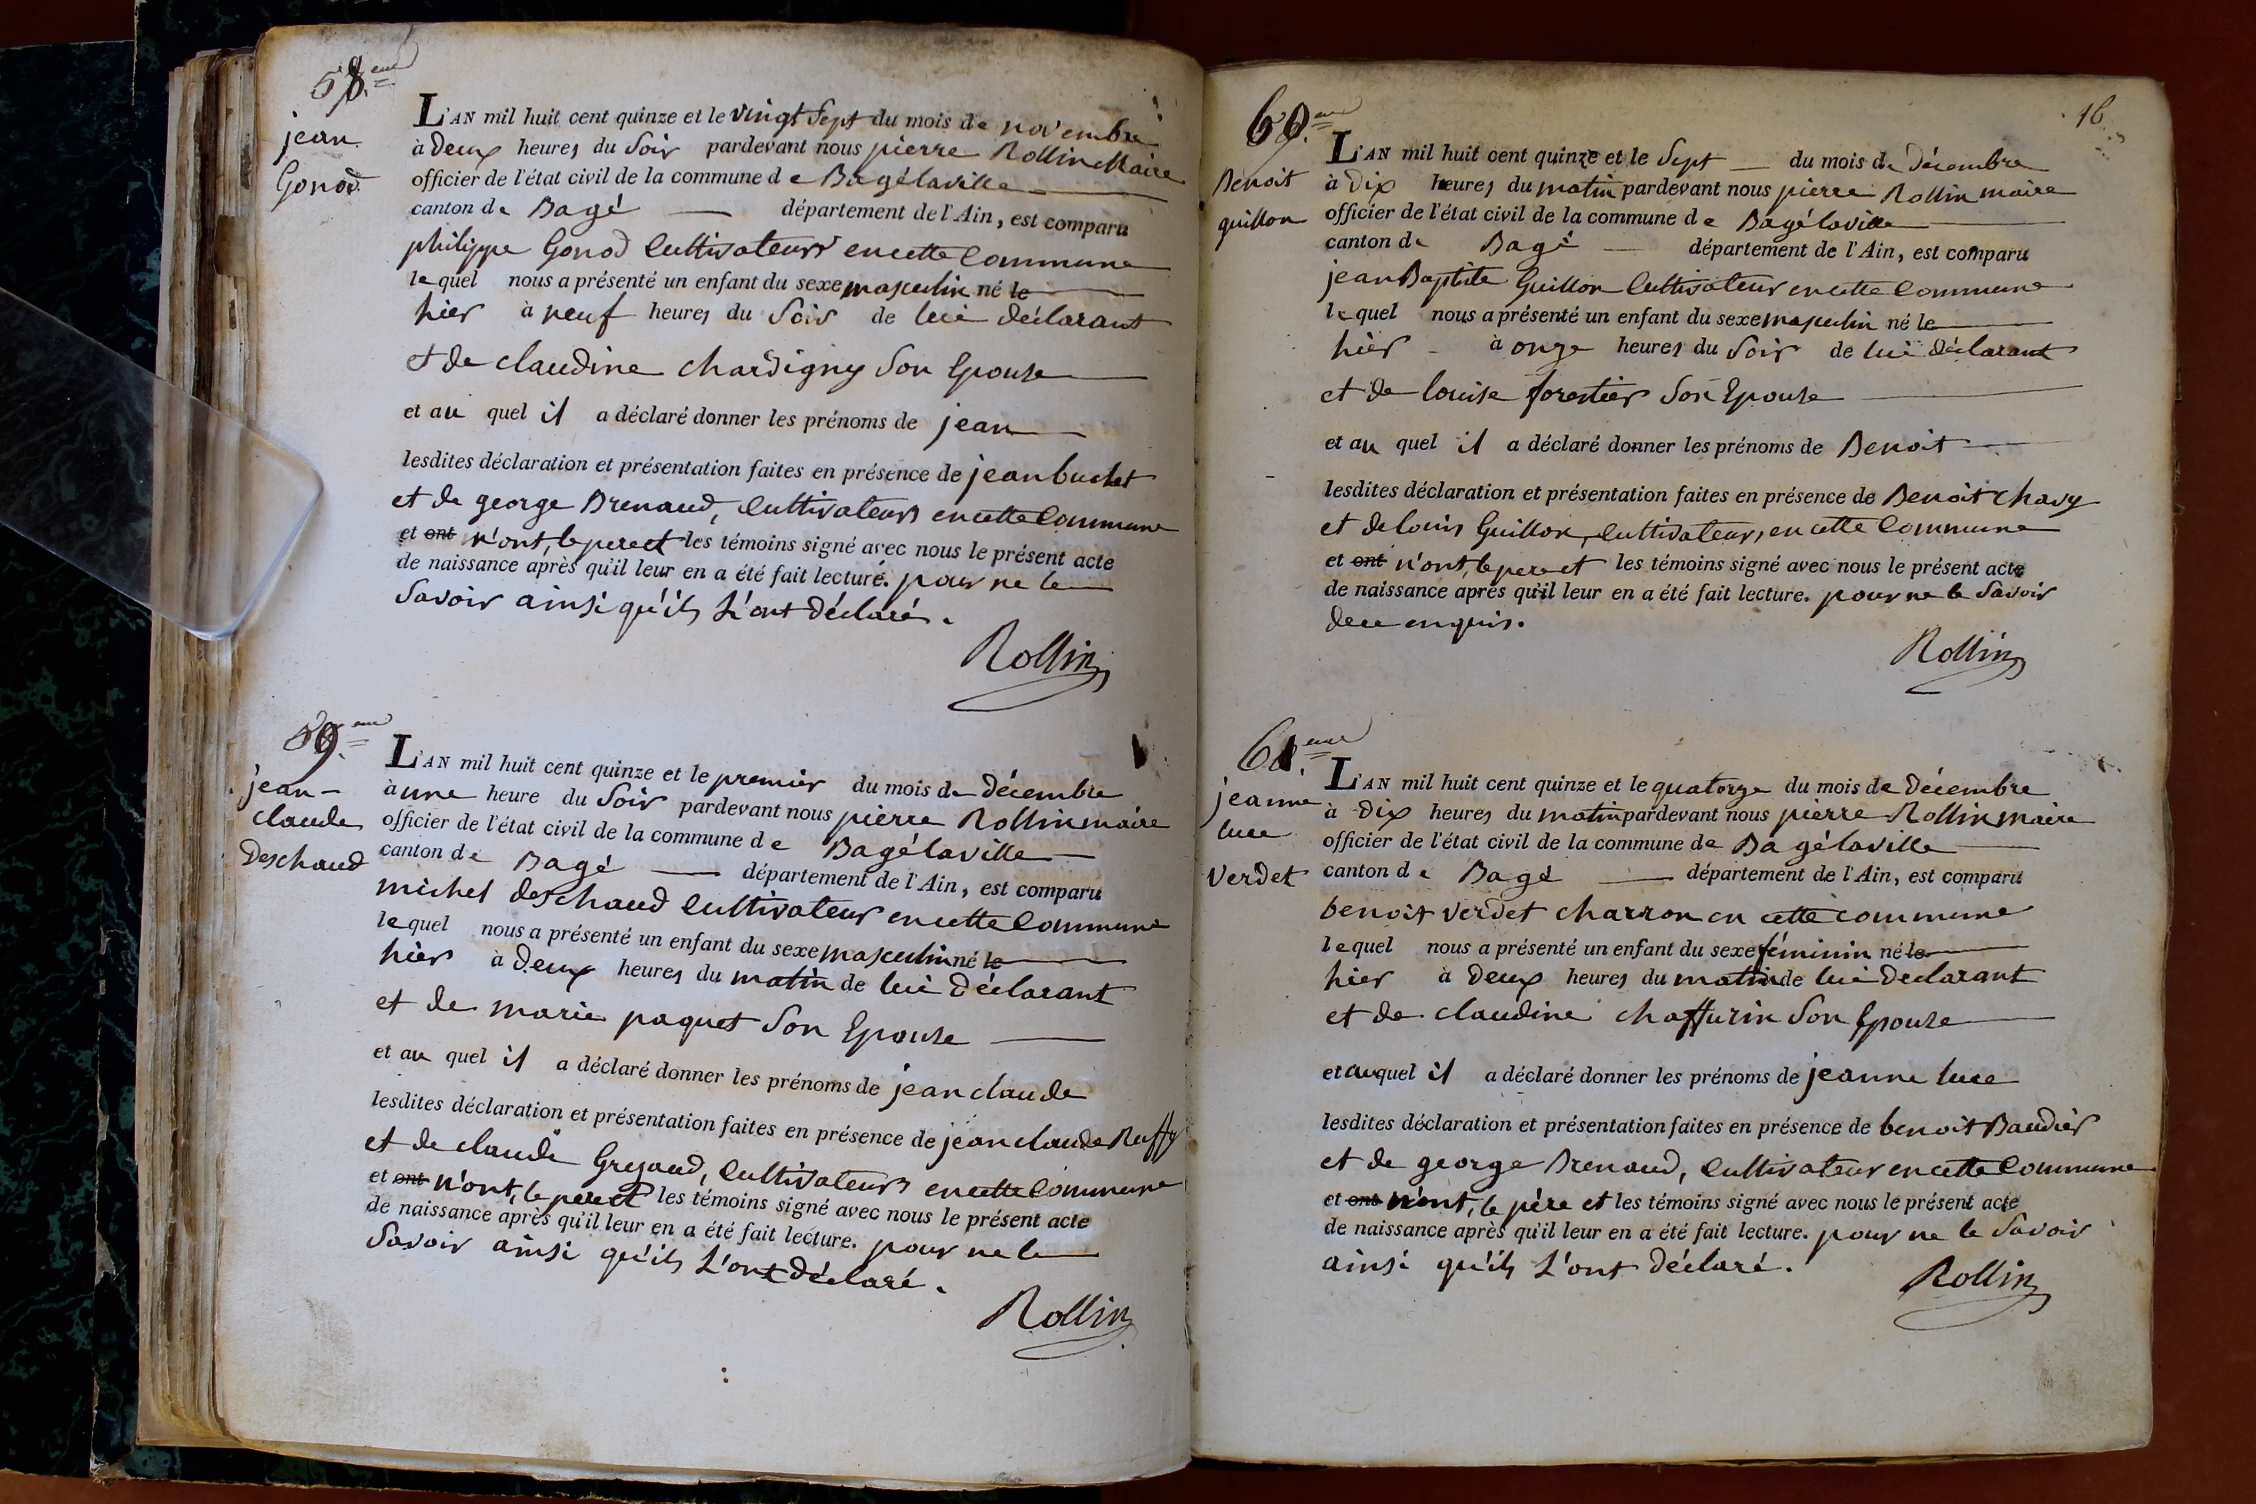 58.eme
jean
Gonod
L'AN mil huit cent quinze et le vingt Sept du mois de novembre
à deux heures du Soir pardevant nous pierre Rollin Maire
officier de l'état civil de la commune de Bagélaville
canton de Bagé département de l'Ain, est comparu
philippe Gonod Cultivateur en cette Commune
lequel nous a présenté un enfant du sexe masculin né le
hier à neuf heures du Soir de lui déclarant
et de claudine chardigny Son Epouse
et au quel il a déclaré donner les prénoms de jean
lesdites déclaration et présentation faites en présence de jean buchet
et de george Brenaud, Cultivateurs en cette Commune
et ont n'ont, le pere et les témoins signé avec nous le présent acte
de naissance après qu'il leur en a été fait lecture. pour ne le
Savoir ainsi qu'ils L'ont déclaré.
Rollin
59.eme
jean-
claude
Deschaud
L'AN mil huit cent quinze et le premier du mois de décembre
à une heure du Soir pardevant nous pierre Rollin maire
officier de l'état civil de la commune de Bagélaville
canton de Bagé département de l'Ain, est comparu
michel deschaud Cultivateur en cette Commune
lequel nous a présenté un enfant du sexe masculin né le
hier à deux heures du matin de lui déclarant
et de marie paquet Son Epouse
et au quel il a déclaré donner les prénoms de jean claude
lesdites déclaration et présentation faites en présence de jean claude Ruffy
et de claude Greyaud, Cultivateurs en cette Commune
et ont n'ont, le pere et les témoins signé avec nous le présent acte
de naissance après qu'il leur en a été fait lecture. pour ne le
Savoir ainsi qu'ils L'ont déclaré.
Rollin
16
60.eme
Benoit
guillon
L'AN mil huit cent quinze et le Sept du mois de décembre
à Dix heures du matin pardevant nous pierre Rollin maire
officier de l'état civil de la commune de Bagélaville
canton de Bagé département de l'Ain, est comparu
jean Baptiste Guillon Cultivateur en cette Commune
lequel nous a présenté un enfant du sexe masculin né le
hier à onze heures du Soir de lui déclarant
et de louise forestier Son Epouse
et au quel il a déclaré donner les prénoms de Benoit
lesdites déclaration et présentation faites en présence de Benoit Chavy
et de louis Guillon, Cultivateurs, en cette Commune
et ont n'ont, le pere et les témoins signé avec nous le présent acte
de naissance après qu'il leur en a été fait lecture. pour ne le Savoir
de ce enquis.
Rollin
61.eme
jeanne
luce
Verdet
L'AN mil huit cent quinze et le quatorze du mois de décembre
à Dix heures du matin pardevant nous pierre Rollin maire
officier de l'état civil de la commune de Bagélaville
canton de Bagé département de l'Ain, est comparu
benoit Verdet charron en cette commune
lequel nous a présenté un enfant du sexe féminin né le
hier à deux heures du matin de lui declarant
et de claudine chaffurin Son Epouse
et auquel il a déclaré donner les prénoms de jeanne luce
lesdites déclaration et présentation faites en présence de benoit Baudier
et de george Brenaud, Cultivateur en cette Commune
et ont n'ont, le père et les témoins signé avec nous le présent acte
de naissance après qu'il leur en a été fait lecture. pour ne le Savoir
ainsi qu'ils L'ont déclaré.
Rollin